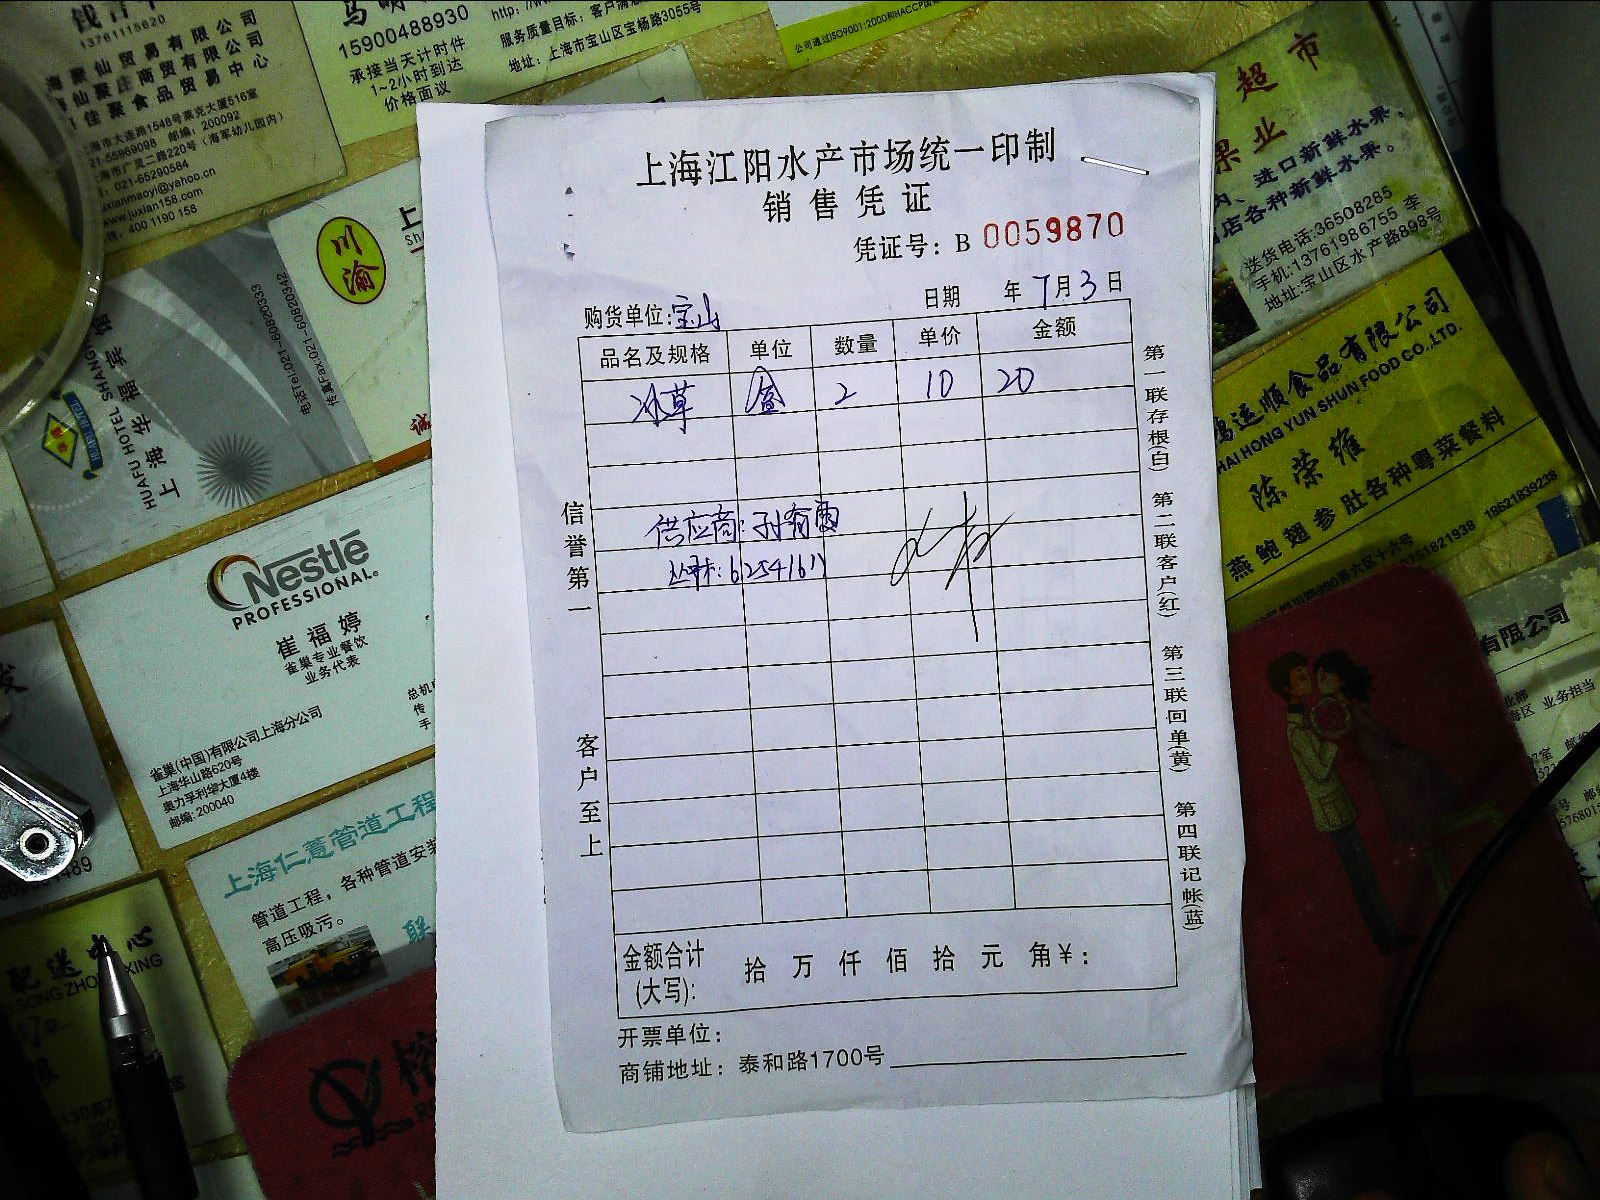 上海江阳水产市场统一印制
销售凭证
凭证号: B 0059870
购货单位: 宝山 日期 年 7月3日
品名及规格 单位 数量 单价 金额
冰草 盒 2 10 20
供应商: 孙有
62541617
信誉第一
客户至上
第一联存根(白) 第二联客户(红) 第三联回单(黄) 第四联记帐(蓝)
金额合计
(大写): 拾 万 仟 佰 拾 元 角 ¥:
开票单位:
商铺地址: 泰和路1700号
13761115620
海聚仙贸易有限公司
仙聚庄商贸有限公司
佳聚食品贸易中心
海市大连路1548号莱克大厦516室
21-55969098 邮编: 200092
海市广灵二路220号 (海军幼儿园内)
: 021-6529058
juxianmaoyi@yahoo.cn
www.juxian158.com
400 1190 158
15900488930
承接当天计时件
1~2小时到达
价格面议
服务质量目标: 客户满意
地址: 上海市宝山区宝杨路3055号
公司通过ISO9001:2000和HACCP国际
超市
果业
进口新鲜水果,
店各种新鲜水果。
送货电话:36508285
手机:13761986755 李
地址:宝山区水产路898号
川渝
上
诚
电话Tel:021-60820333
传真Fax:021-60820342
HUAFU HOTEL SHANGH
上海华福宾馆
Nestlé
PROFESSIONAL
崔福婷
雀巢专业餐饮
业务代表
总机
传
手
雀巢(中国)有限公司上海分公司
上海华山路620号
奥力孚利华大厦4楼
邮编: 200040
上海仁薏管道工程
管道工程, 各种管道安装
高压吸污。
联
鸿运顺食品有限公司
HAI HONG YUN SHUN FOOD CO.,LTD.
陈荣维
燕鲍翅参肚各种粤菜餐料
18621839238
有限公司
业务担当
配送中心
I SONG ZHO XING